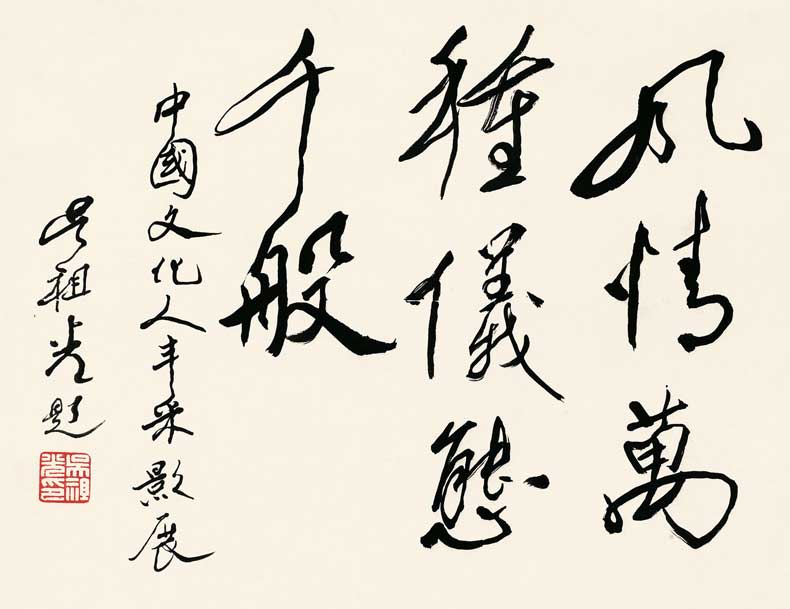 风情萬
種儀態
千般
中國文化人丰采影展
吴祖光题
吴祖光印